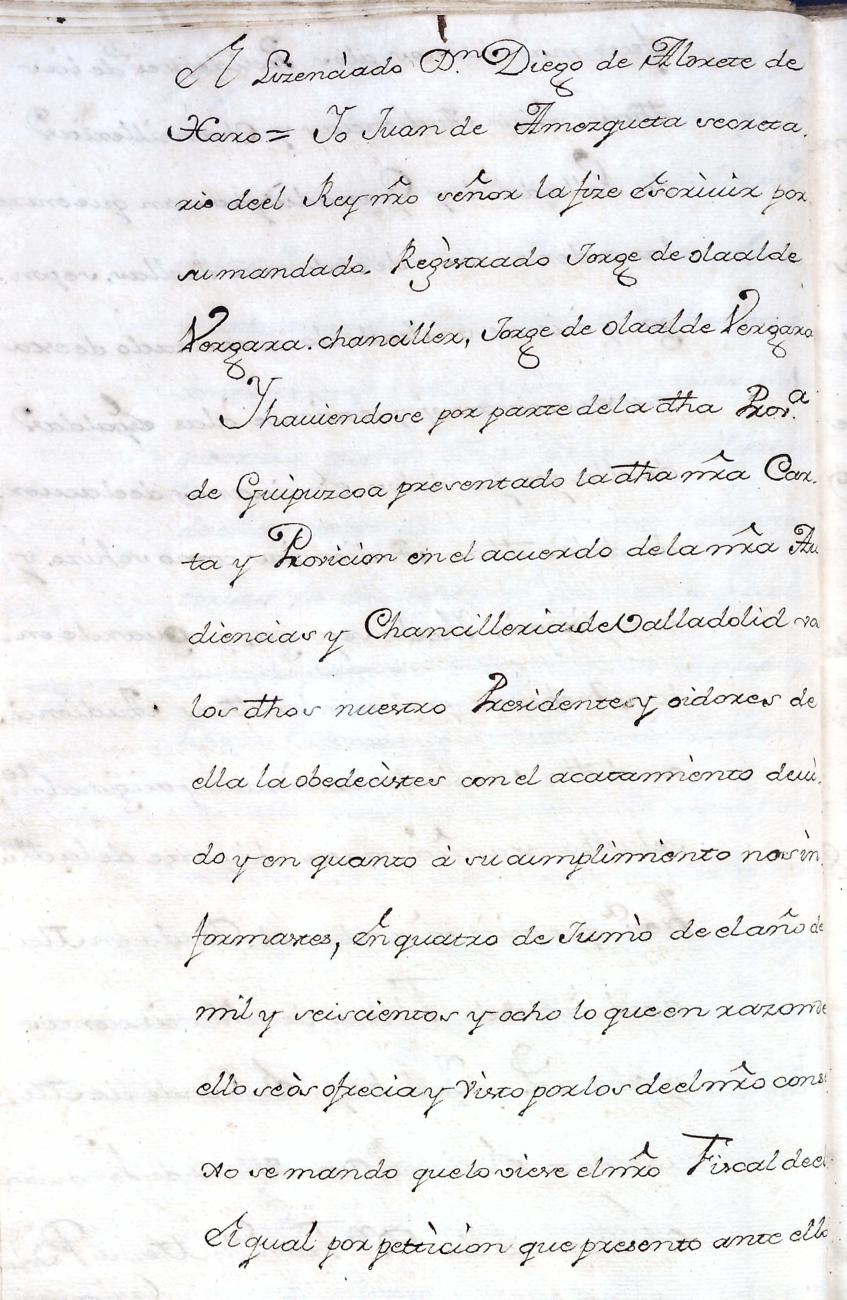 El Lizenciado Dn Diego de Alrrete de
Haro= Yo Juan de Amezqueta secreta.
rio deel Rey nro señor la fize escrivir por
su mandado. Registrado Jorge de olaalde
Vergara. chanciller, Jorge de olaalde Vergara
Y haviendose por parte de la dha Prova
de Guipuzcoa presentado la dha nra Car.
ta y Provicion en el acuerdo de la nra Au
diencias y Chancilleria de Valladolid vo
los dhos nuestro Presidente y oidores de
ella la obedecistes con el acatamiento devi.
do y en quanto à su cumplimiento nos in
formastes, En quatro de Junio de el año de
mil y seiscientos y ocho lo que en razon de
ello se òs ofrecia y visto por los de el nro conse
xo se mando que lo viese el nro Fiscal de el
El qual por petticion que presento ante ello